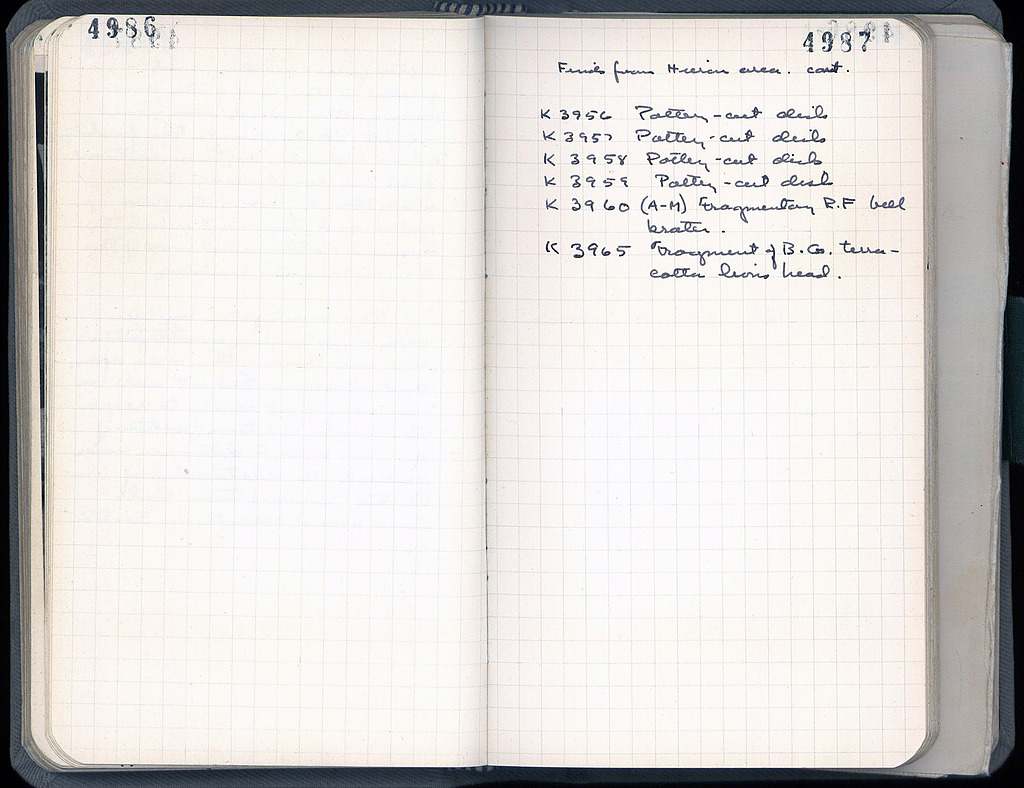 4986
4987
Finds from Hieron area. cont.
K 3956 Pottery-cut disk
K 3957 Pottery-cut disk
K 3958 Pottery-cut disk
K 3959 Pottery-cut disk
K 3960 (A-M) Fragmentary R.F bell
krater.
K 3965 Fragment of B.G. terra-
cotta lion's head.